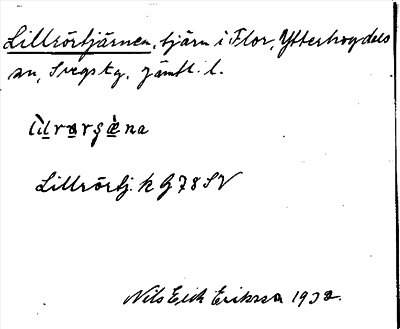 Lillrörtjärnen, tjärn i Flor, Ytterhogdals
sn, Svegs tg, Jämtl. l.
Lillrörtj. k G 78 SV
Nils Erik Eriksson 1932.